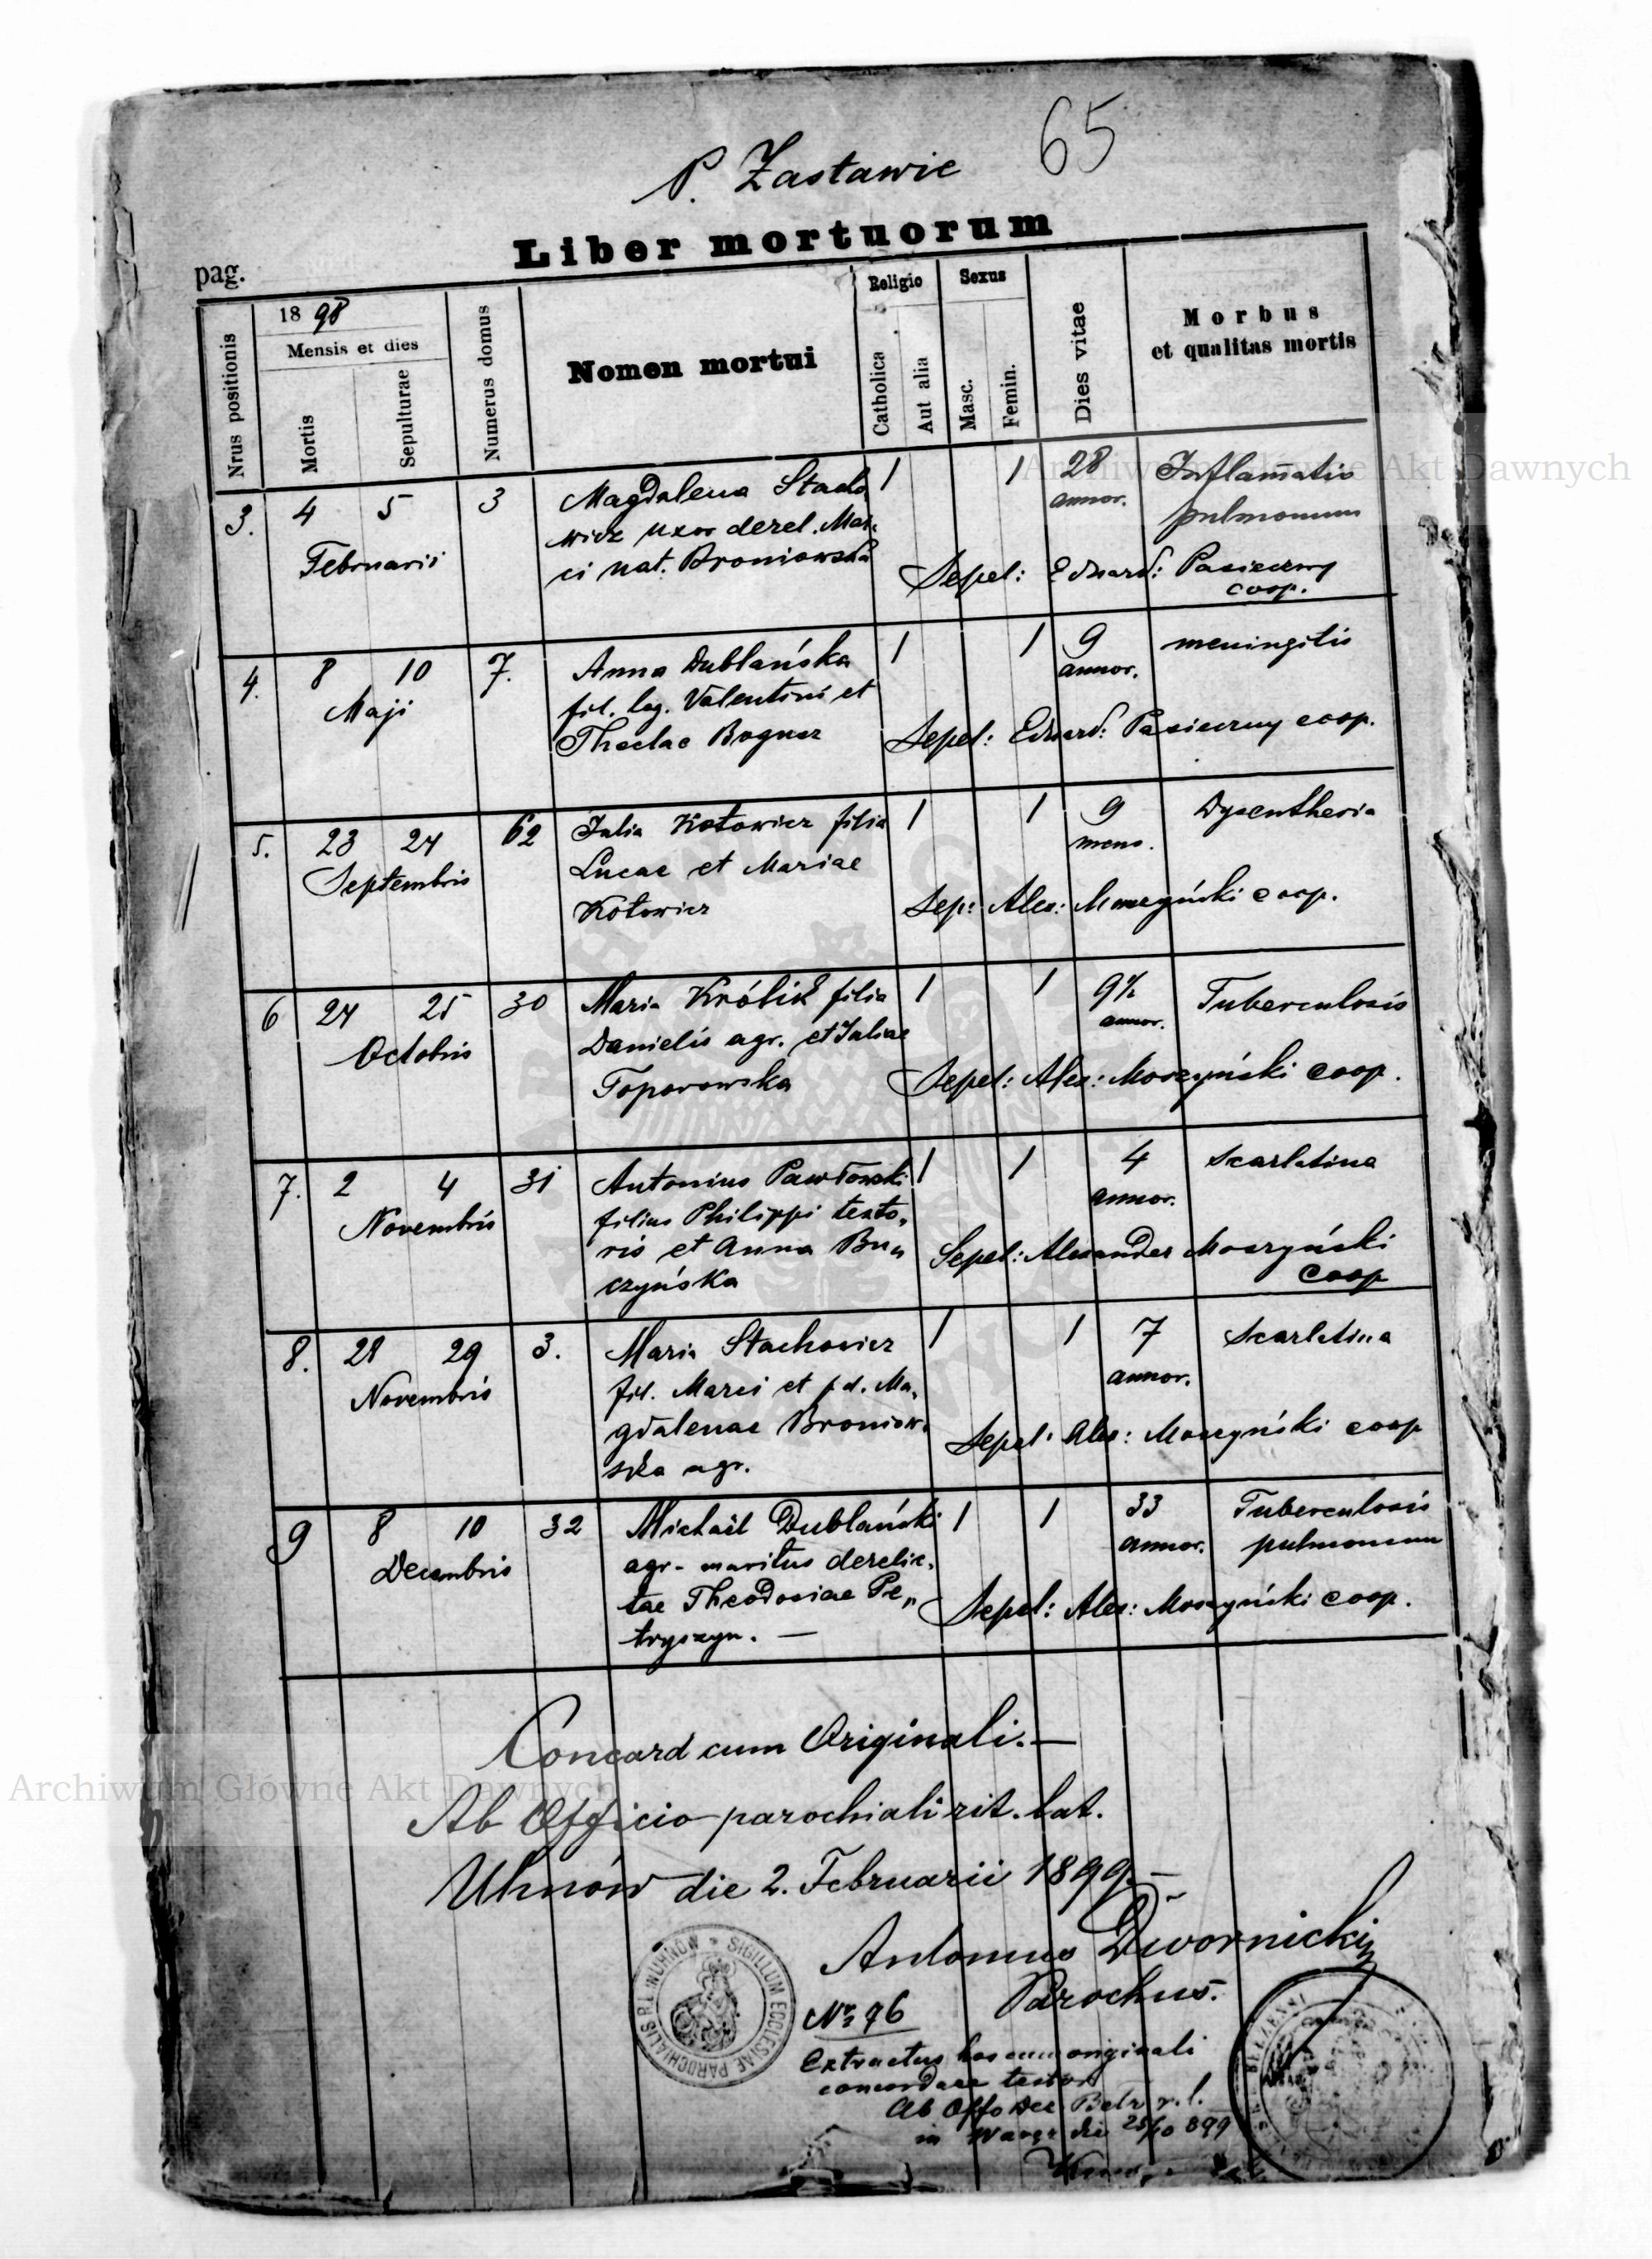 65
P. Zastawie
Liber mortuorum
pag.
Nrus positionis
1898
Mensis et dies
Mortis
Sepulturae
Numerus domus
Nomen mortui
Religio
Catholica
Aut alia
Sexus
Masc.
Femin.
Dies vitae
Morbus
et qualitas mortis
3. 4 5 3 Magdalena Stacho 1 1 28 Inflam̄atio
Februarii wicz uxor derel. Mar- annor. pulmonum
ci nat. Broniowska Sepel: Eduard: Pasieczny
coop.
4. 8 10 7. Anna Dublańska 1 1 9 meningitis
Maji fil. leg. Valentini et annor.
Theclae Bogusz Sepel: Eduard: Pasieczny coop.
5. 23 24 62 Julia Kotowicz filia 1 1 9 Dysentheria
Septembris Lucae et Mariae mens.
Kotowicz Sep: Alex: Moszyński coop.
6 24 25 30 Maria Królik filia 1 1 9½ Tuberculosis
Octobris Danielis agr. et Juliae annor.
Toporowska Sepel: Alex: Moszyński coop.
7. 2 4 31 Antonius Pawłowski 1 1 4 Scarlatina
Novembris filius Philippi texto- annor.
ris et Anna Bu„ Sepel: Alexander Moszyński
czyńska coop
8. 28 29 3. Maria Stachowicz 1 1 7 Scarlatina
Novembris fil. Marci et p.d. Ma- annor.
gdalenae Broniow- Sepel: Alex: Moszyński coop
ska agr.
9 8 10 32 Michaël Dublański 1 1 33 Tuberculosis
Decembris agr. maritus derelic- annor. pulmonum
tae Theodosiae Pe„ Sepel: Alex: Moszyński coop.
tryszyn. —
Concord cum Originali.—
Ab Officio parochiali rit. lat.
Uhnów die 2. Februarii 1899.—
Antonius Dwornicki
Parochus.
SIGILLUM ECCLESIAE PAROCHIALIS R.L. IN UHNOW
Nr 96
Extractus hos cum originali
concordare testor
Ab Offo Dec Belz r. l.
in Waręż die 25/10 899
Archiwum Główne Akt Dawnych
Archiwum Główne Akt Dawnych